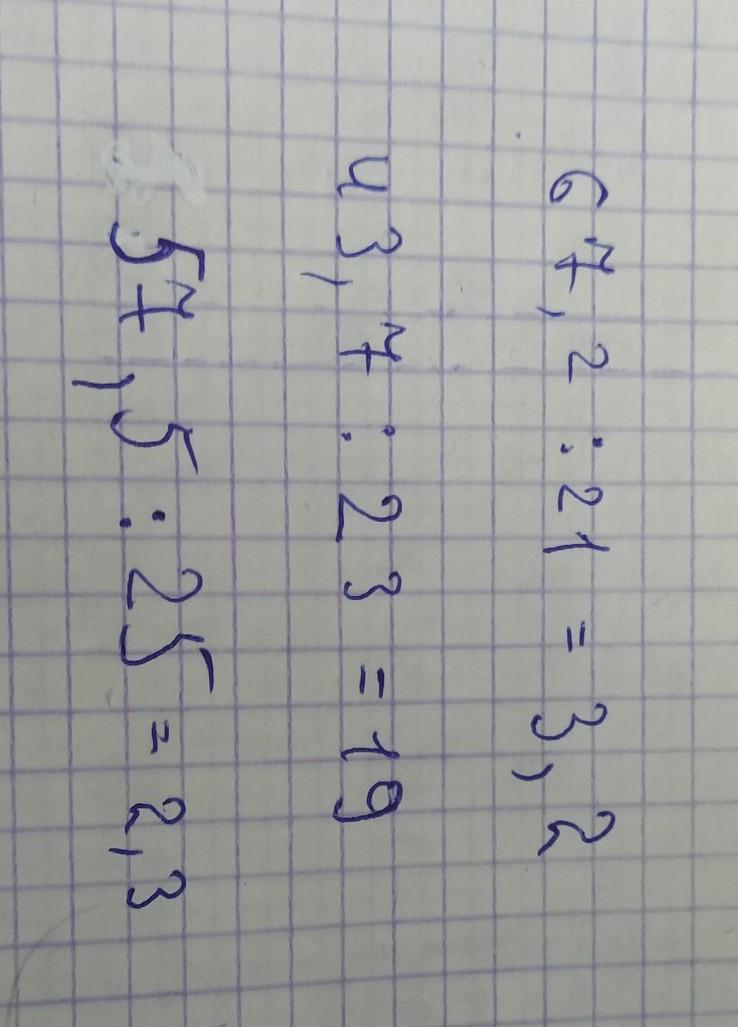 67,2 : 21 = 3,2
43,7 : 23 = 19
57,5 : 25 = 2,3